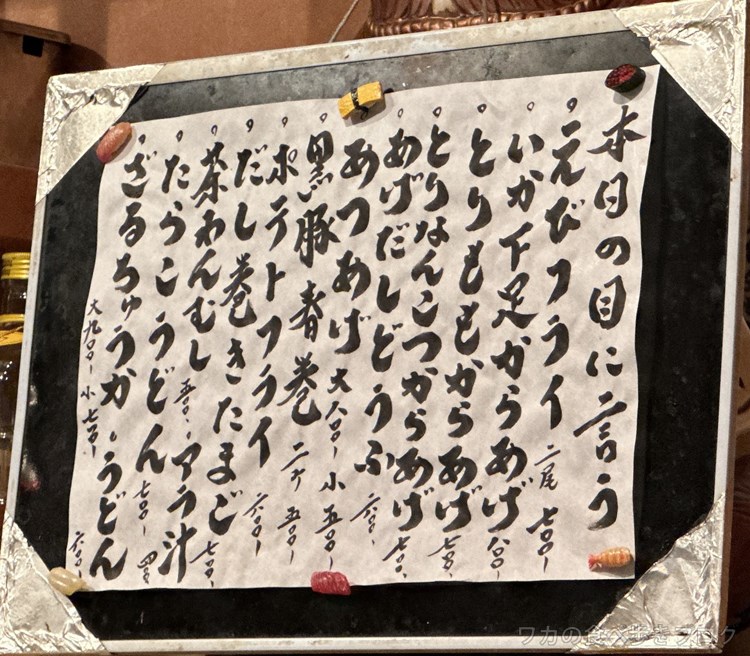 本日の目に言う
えびフライ 二尾 七〇〇-
いか下足からあげ 八〇〇-
とりももからあげ 七〇〇-
とりなんこつからあげ 七〇〇、
あげだしどうふ 六〇〇-
あつあげ 大 八〇〇- 小 五〇〇-
黒豚春巻 二ヶ 五〇〇-
ポテトフライ 六〇〇-
だし巻きたまご 七〇〇、
茶わんむし 五〇〇、アラ汁
たらこうどん 七〇〇-
ざるちゅうか、うどん 六〇〇-
大 九〇〇- 小 七〇〇-
ワカの食べ歩きブログ